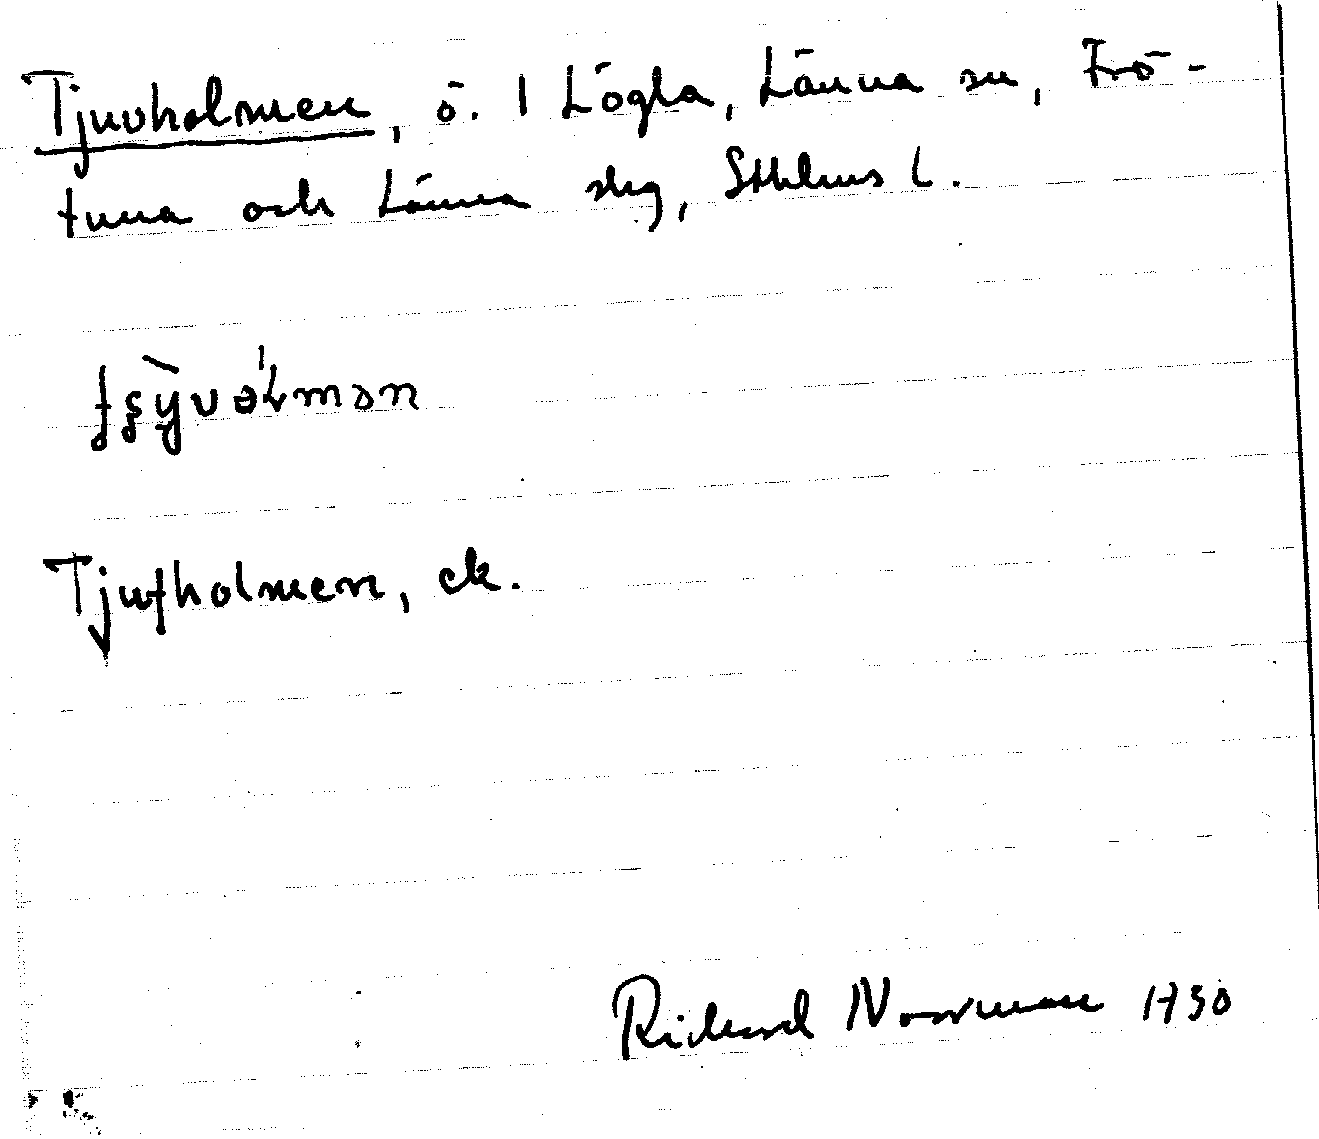 Tjuvholmen, ö. 1 Lögla, Länna sn, Frö-
tuna och Länna skg, Sthlms l.
Tjufholmen, ek.
Richard Norrman 1930